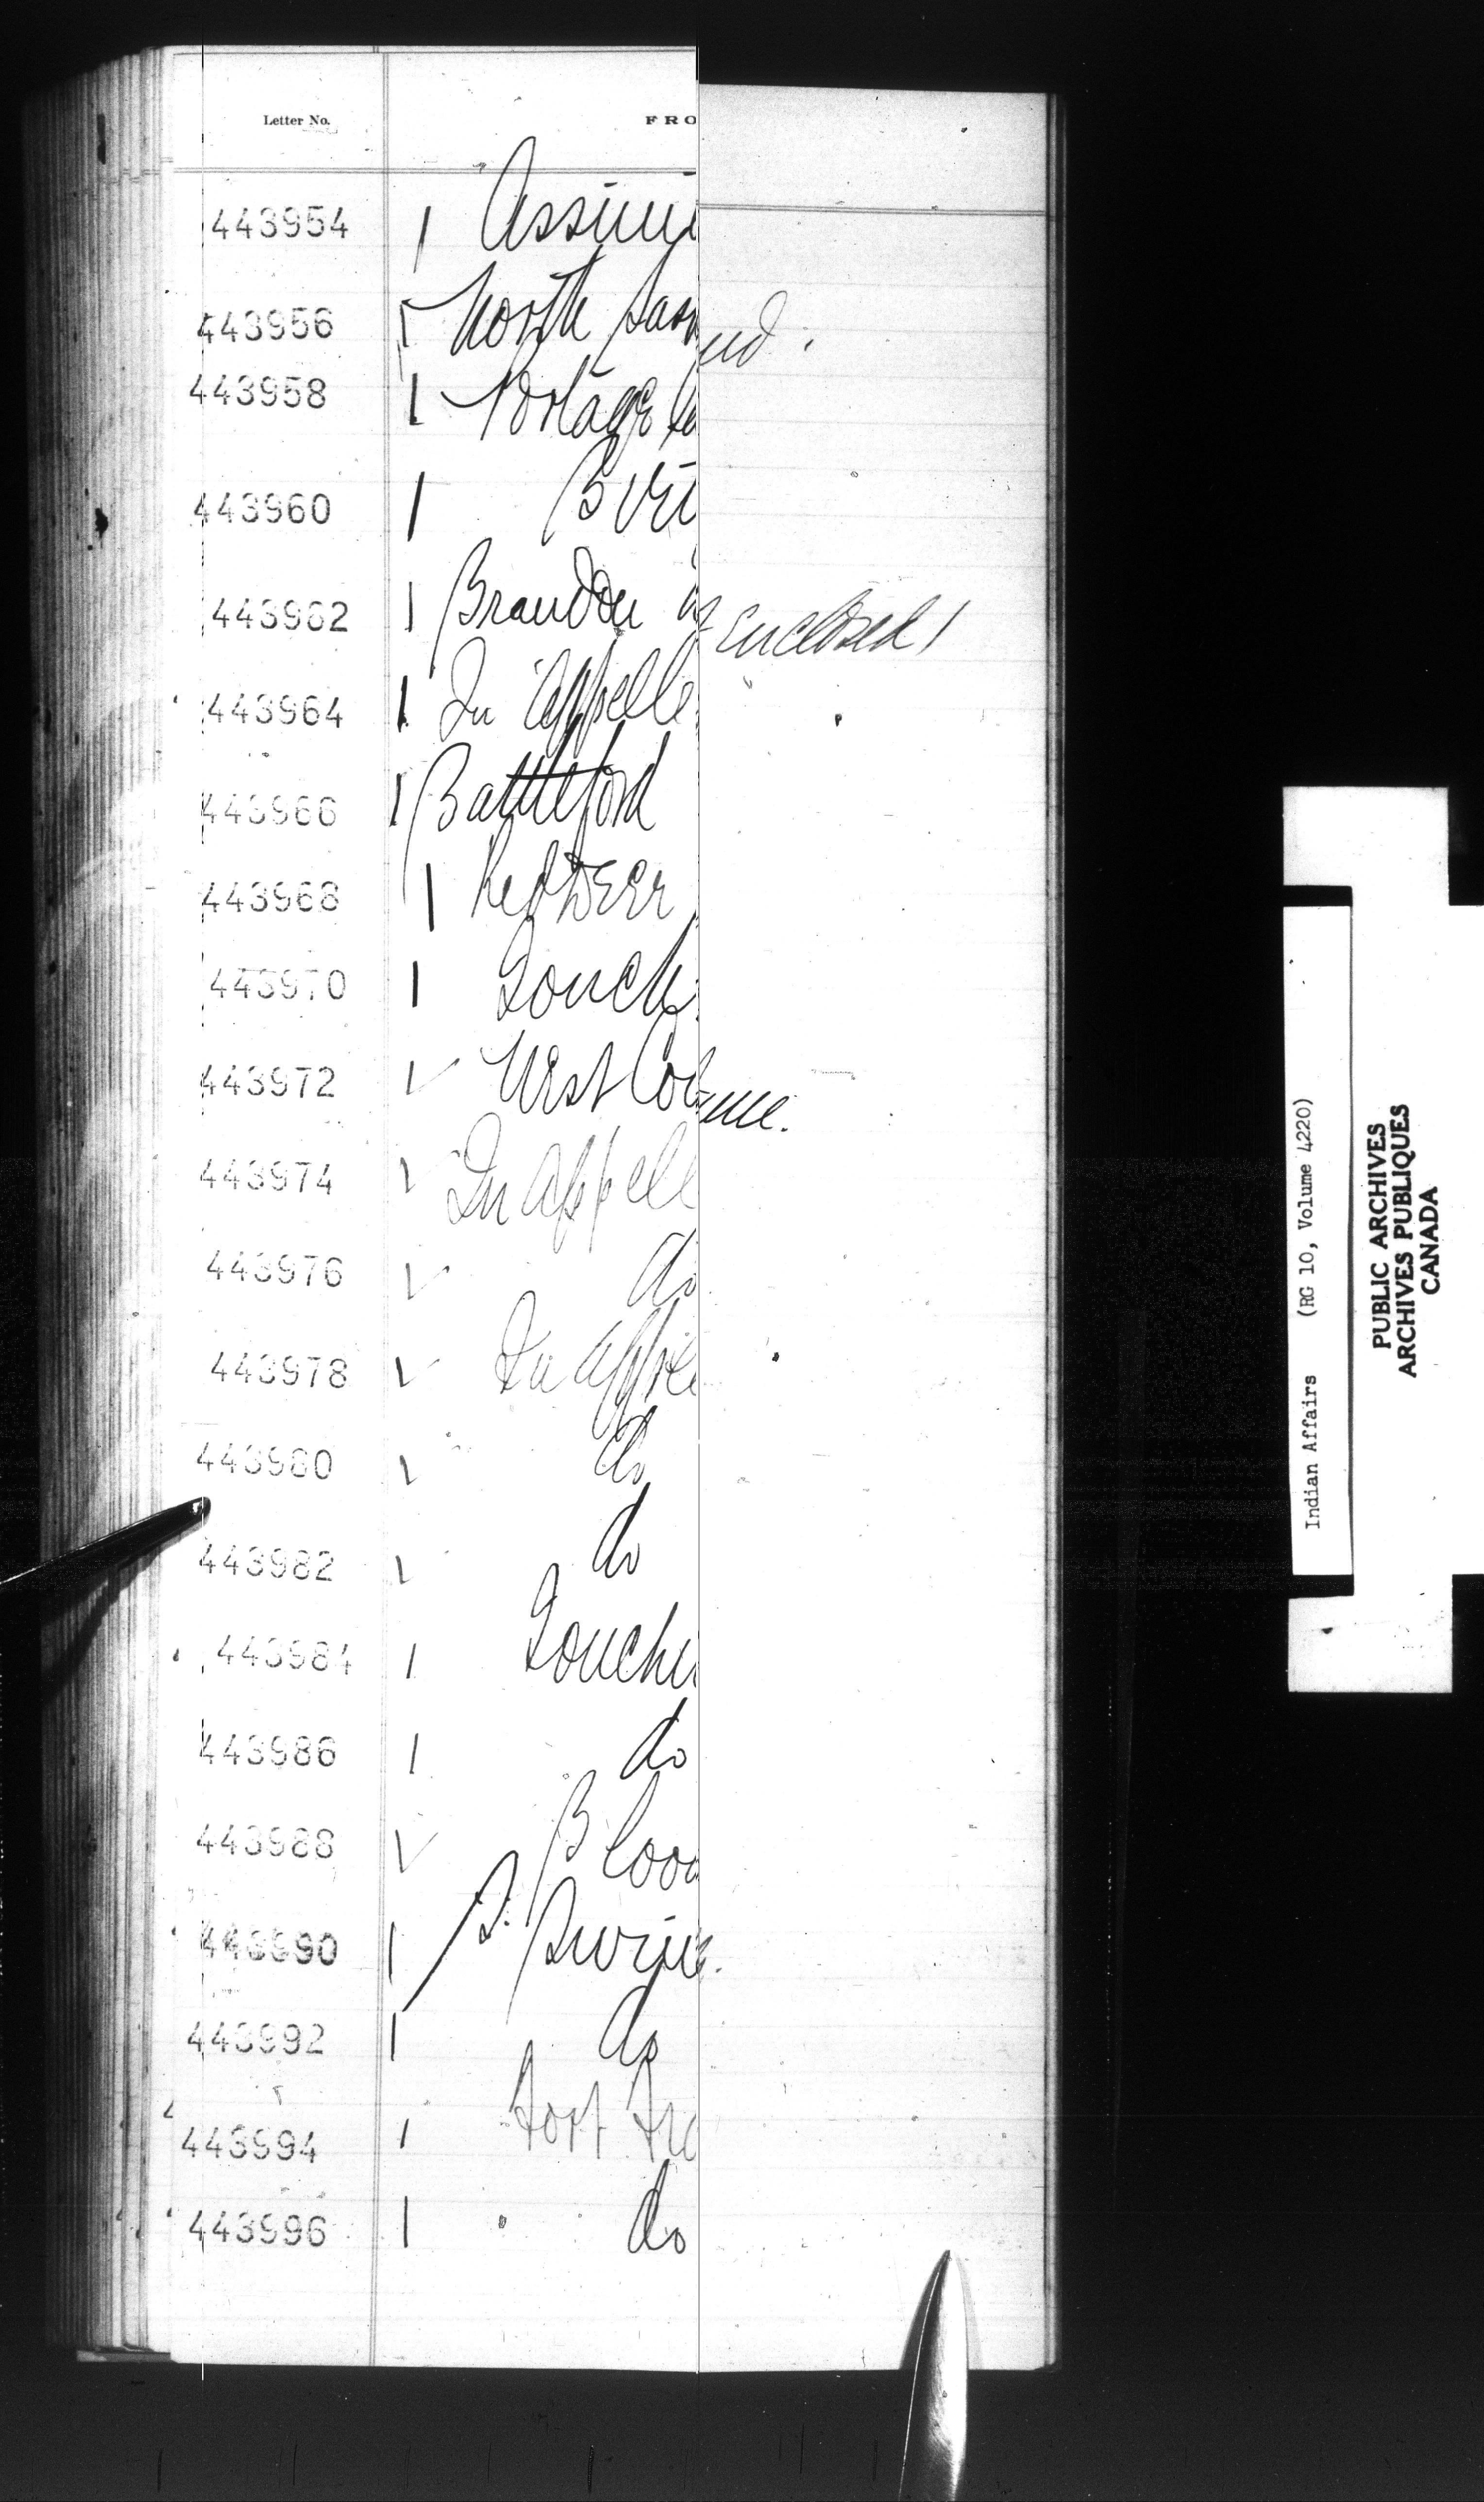 Letter No. FRO
443954 Assini
443956 North Sas
ud.
443958 Portage la
443960 Birt
443962 Brandon
Enclosed /
443964 Qu'Appelle
443966 Battleford
443968 Red Deer
443970 Touch
443972 West Co
me.
443974 Qu'Appell
443976 do
443978 Qu'Appe
443980 do
443982 do
443984 Touchw
443986 do
443988 Blood
443990 S. Swin
443992 do
443994 Fort Fr
443996 do
Indian Affairs (RG 10, Volume 4220)
PUBLIC ARCHIVES
ARCHIVES PUBLIQUES
CANADA